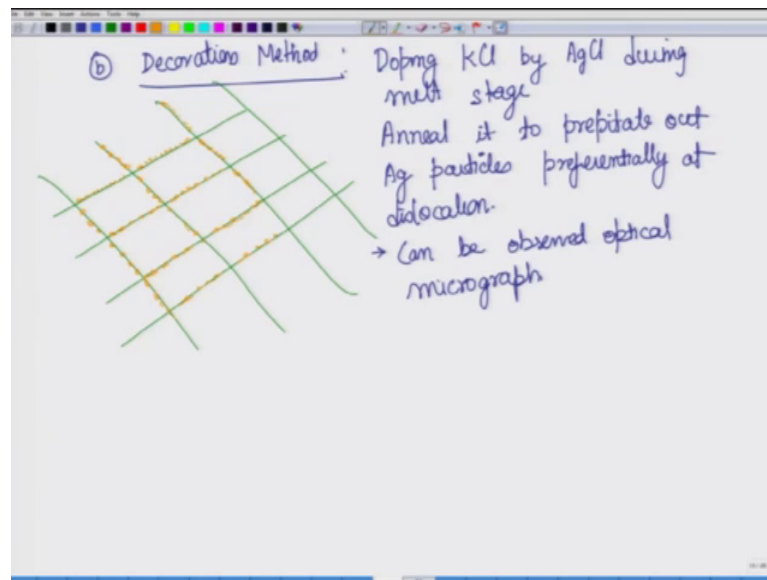 ⓑ Decoration Method : Doping KCl by AgCl during
melt stage
Anneal it to prepitate out
Ag particles preferentially at
dislocation.
→ Can be observed optical
micrograph